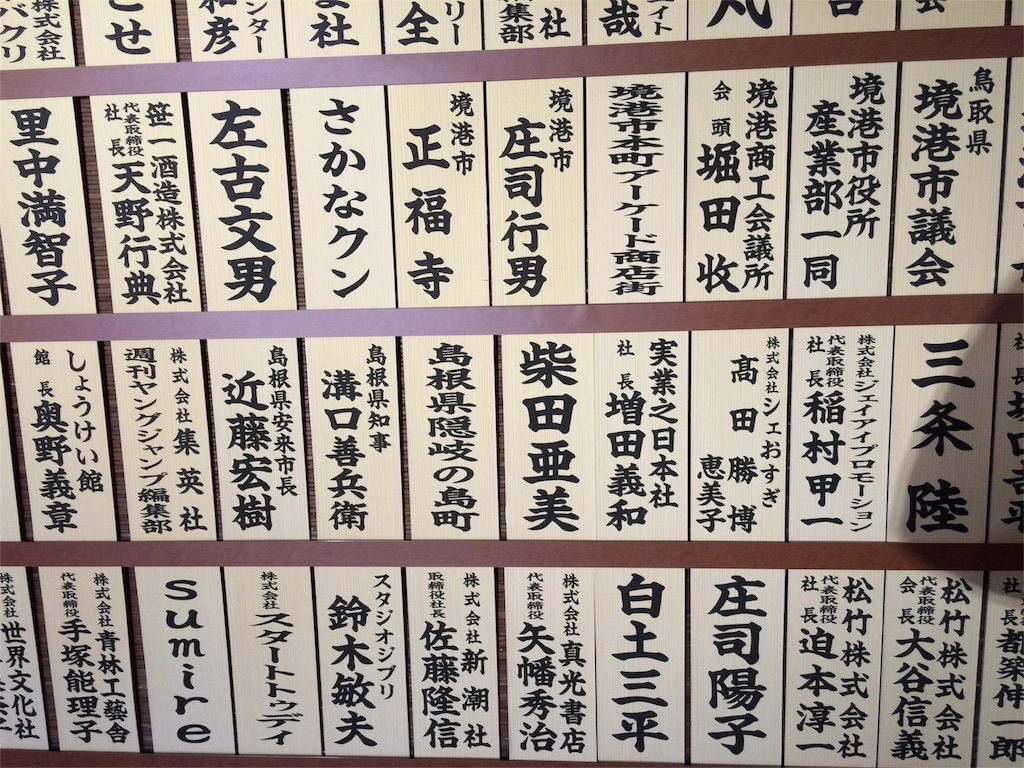 集部
社
哉
全
リー
社
ンター
和彦
株式会社
鳥取県
境港市議会
境港市役所
産業部一同
境港商工会議所
会頭 堀田收
境港市本町アーケード商店街
境港市
庄司行男
境港市
正福寺
さかなクン
左古文男
笹一酒造株式会社
代表取締役
社長 天野行典
里中満智子
三条陸
株式会社ジェイアイプロモーション
代表取締役
社長 稲村甲一
株式会社シェおすぎ
髙田勝博
恵美子
実業之日本社
社長 増田義和
柴田亜美
島根県隠岐の島町
島根県知事
溝口善兵衛
島根県安来市長
近藤宏樹
株式会社集英社
週刊ヤングジャンプ編集部
しょうけい館
館長 奥野義章
社長 都築伸一郎
松竹株式会社
代表取締役
会長 大谷信義
松竹株式会社
代表取締役
社長 迫本淳一
庄司陽子
白土三平
株式会社真光書店
代表取締役 矢幡秀治
株式会社新潮社
取締役社長 佐藤隆信
スタジオジブリ
鈴木敏夫
株式会社スタートトゥデイ
sumire
株式会社青林工藝舎
代表取締役 手塚能理子
株式会社世界文化社